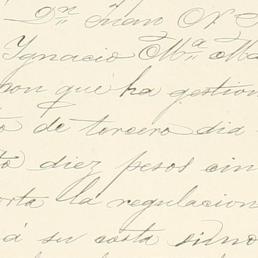 Dn. Juan N.
Ygnacio Ma. Ma
non que ha gestion
to de tercero dia
to diez pesos cin
orta la regulacion
á su costa sino